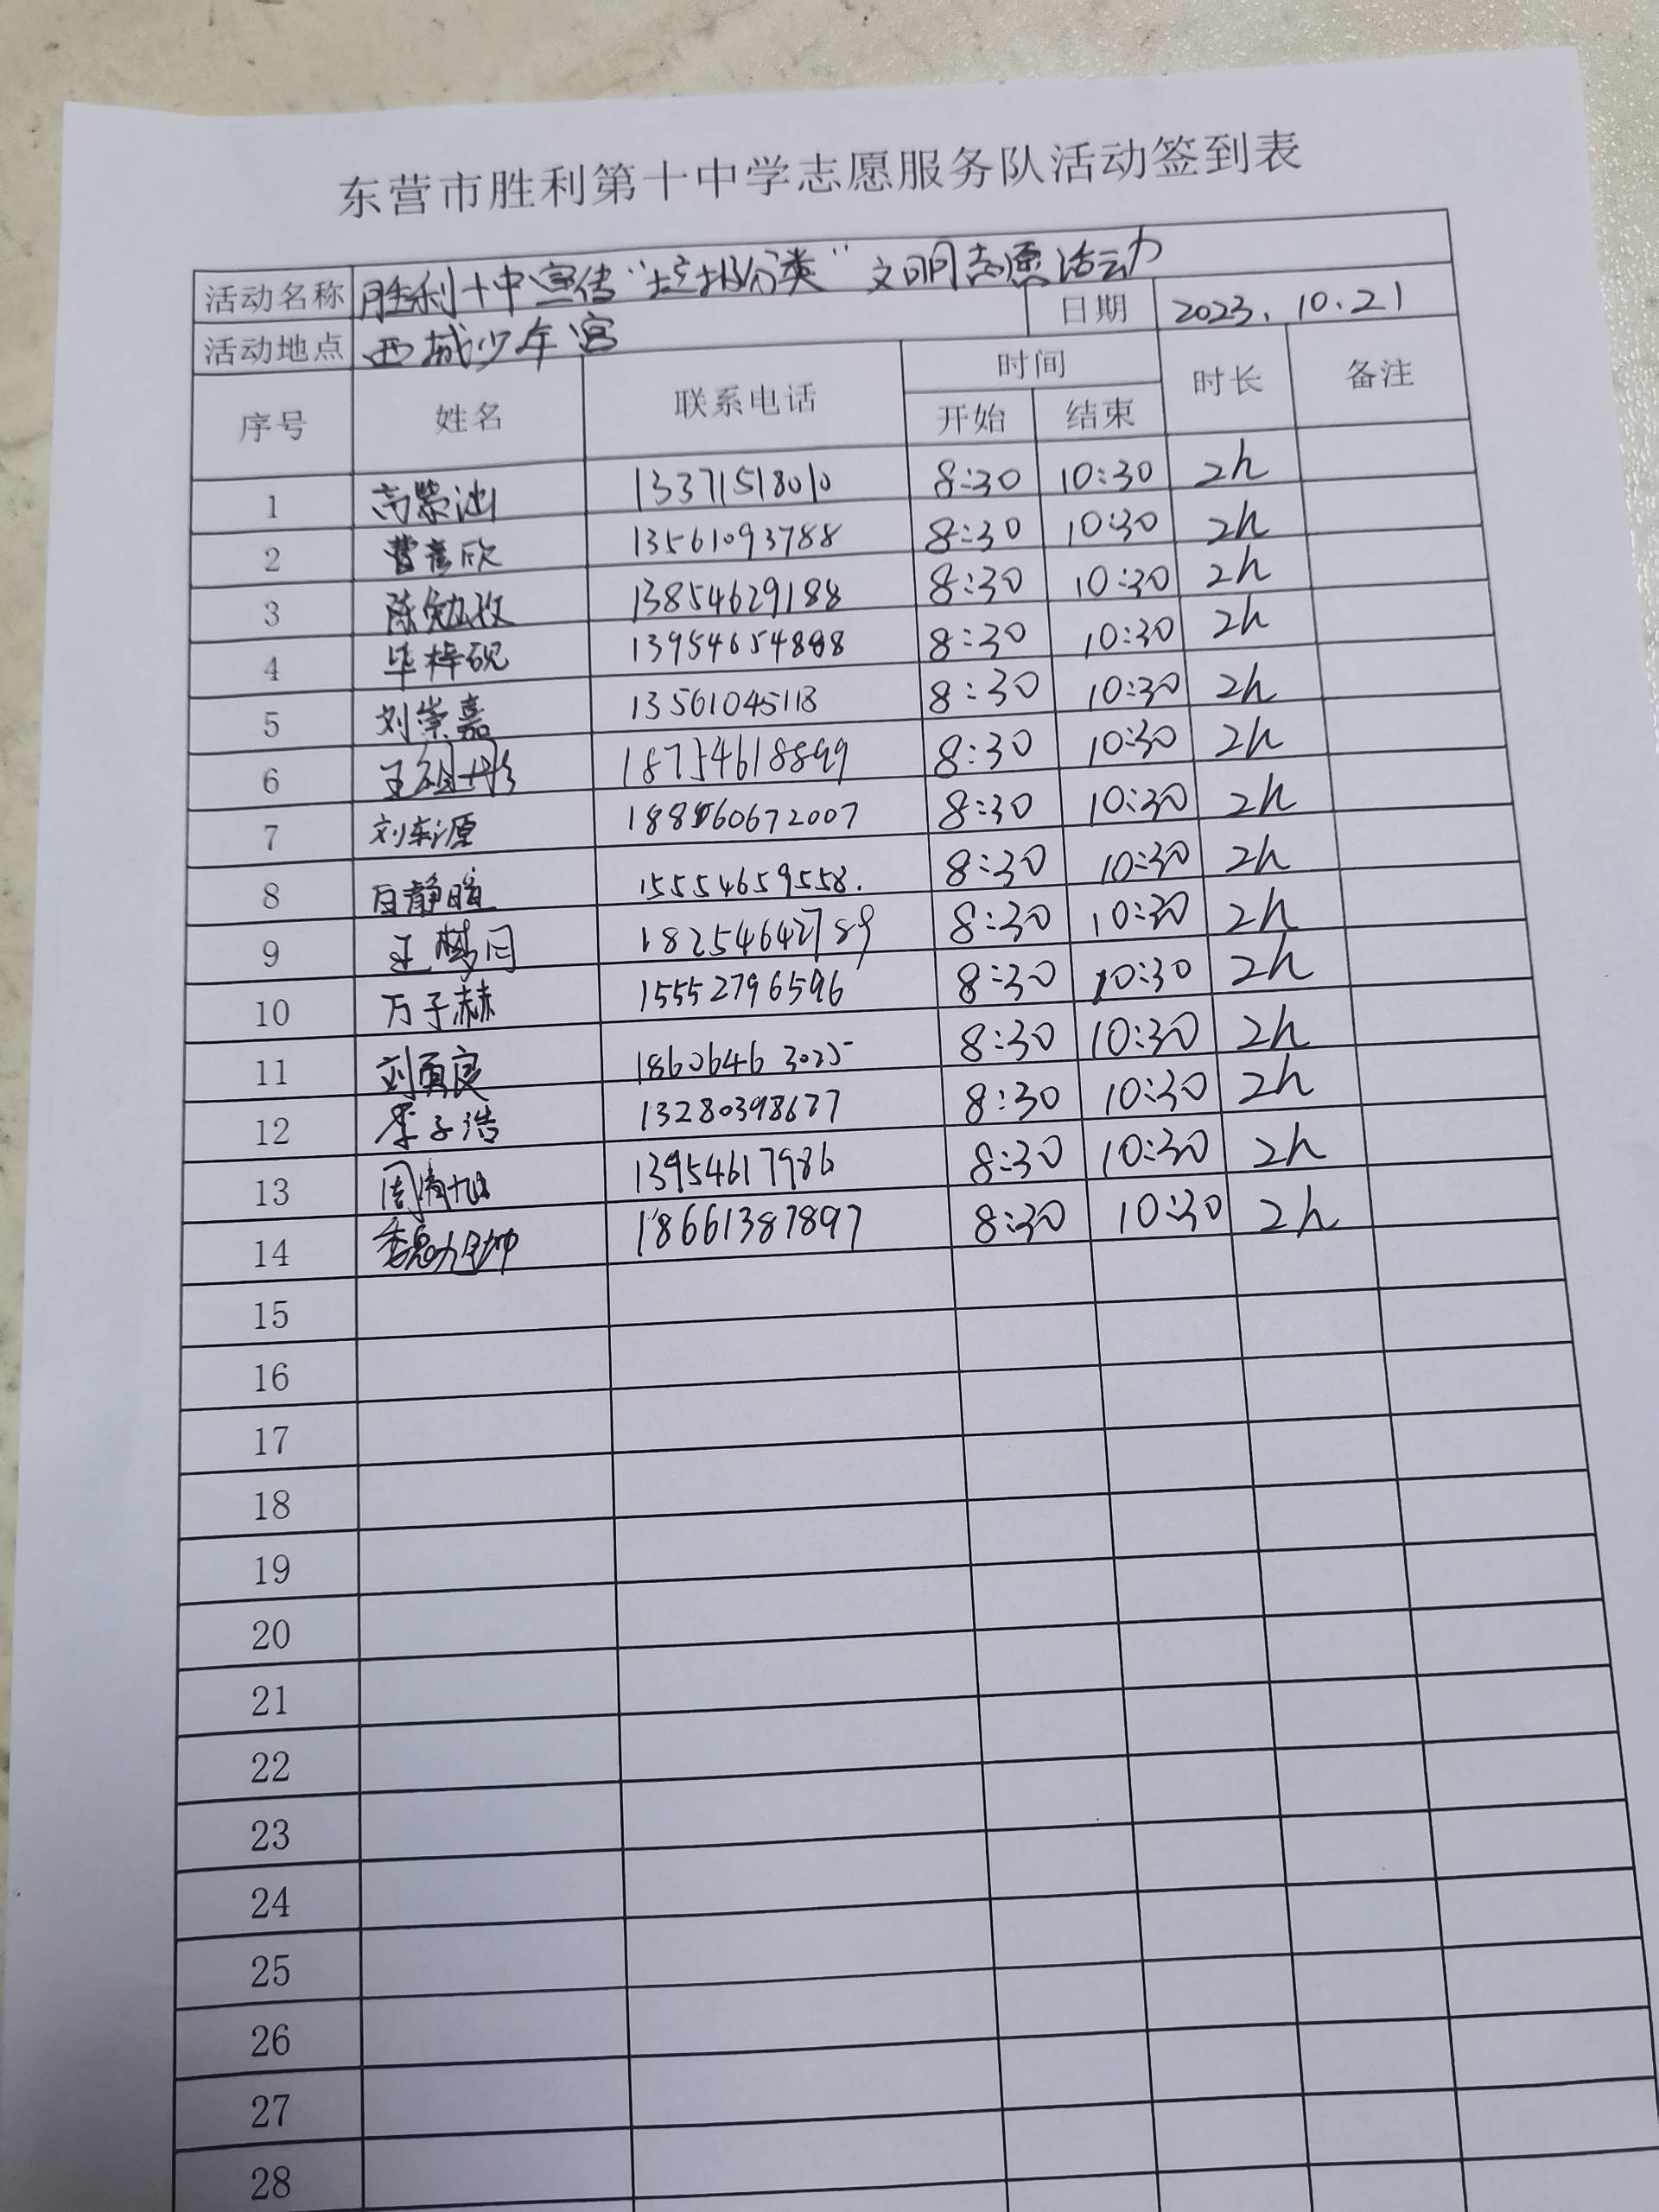 东营市胜利第十中学志愿服务队活动签到表
活动名称 胜利十中宣传“垃圾分类”文明志愿活动
活动地点 西城少年宫 日期 2023.10.21
序号 姓名 联系电话 时间 时长 备注
开始 结束
1 高 13371518010 8:30 10:30 2h
2 曹彦欣 13561093788 8:30 10:30 2h
3 陈勉 13854629188 8:30 10:30 2h
4 毕梓砚 13954654888 8:30 10:30 2h
5 刘崇嘉 13561045118 8:30 10:30 2h
6 王 18754618899 8:30 10:30 2h
7 刘东源 8:30 10:30 2h
8 静暄 15554659558. 8:30 10:30 2h
9 王梦同 18254642789 8:30 10:30 2h
10 万子赫 15552796596 8:30 10:30 2h
11 刘 良 18606463025 8:30 10:30 2h
12 李子浩 13280398677 8:30 10:30 2h
13 周 旭 13954617986 8:30 10:30 2h
14 18661387897 8:30 10:30 2h
15
16
17
18
19
20
21
22
23
24
25
26
27
28